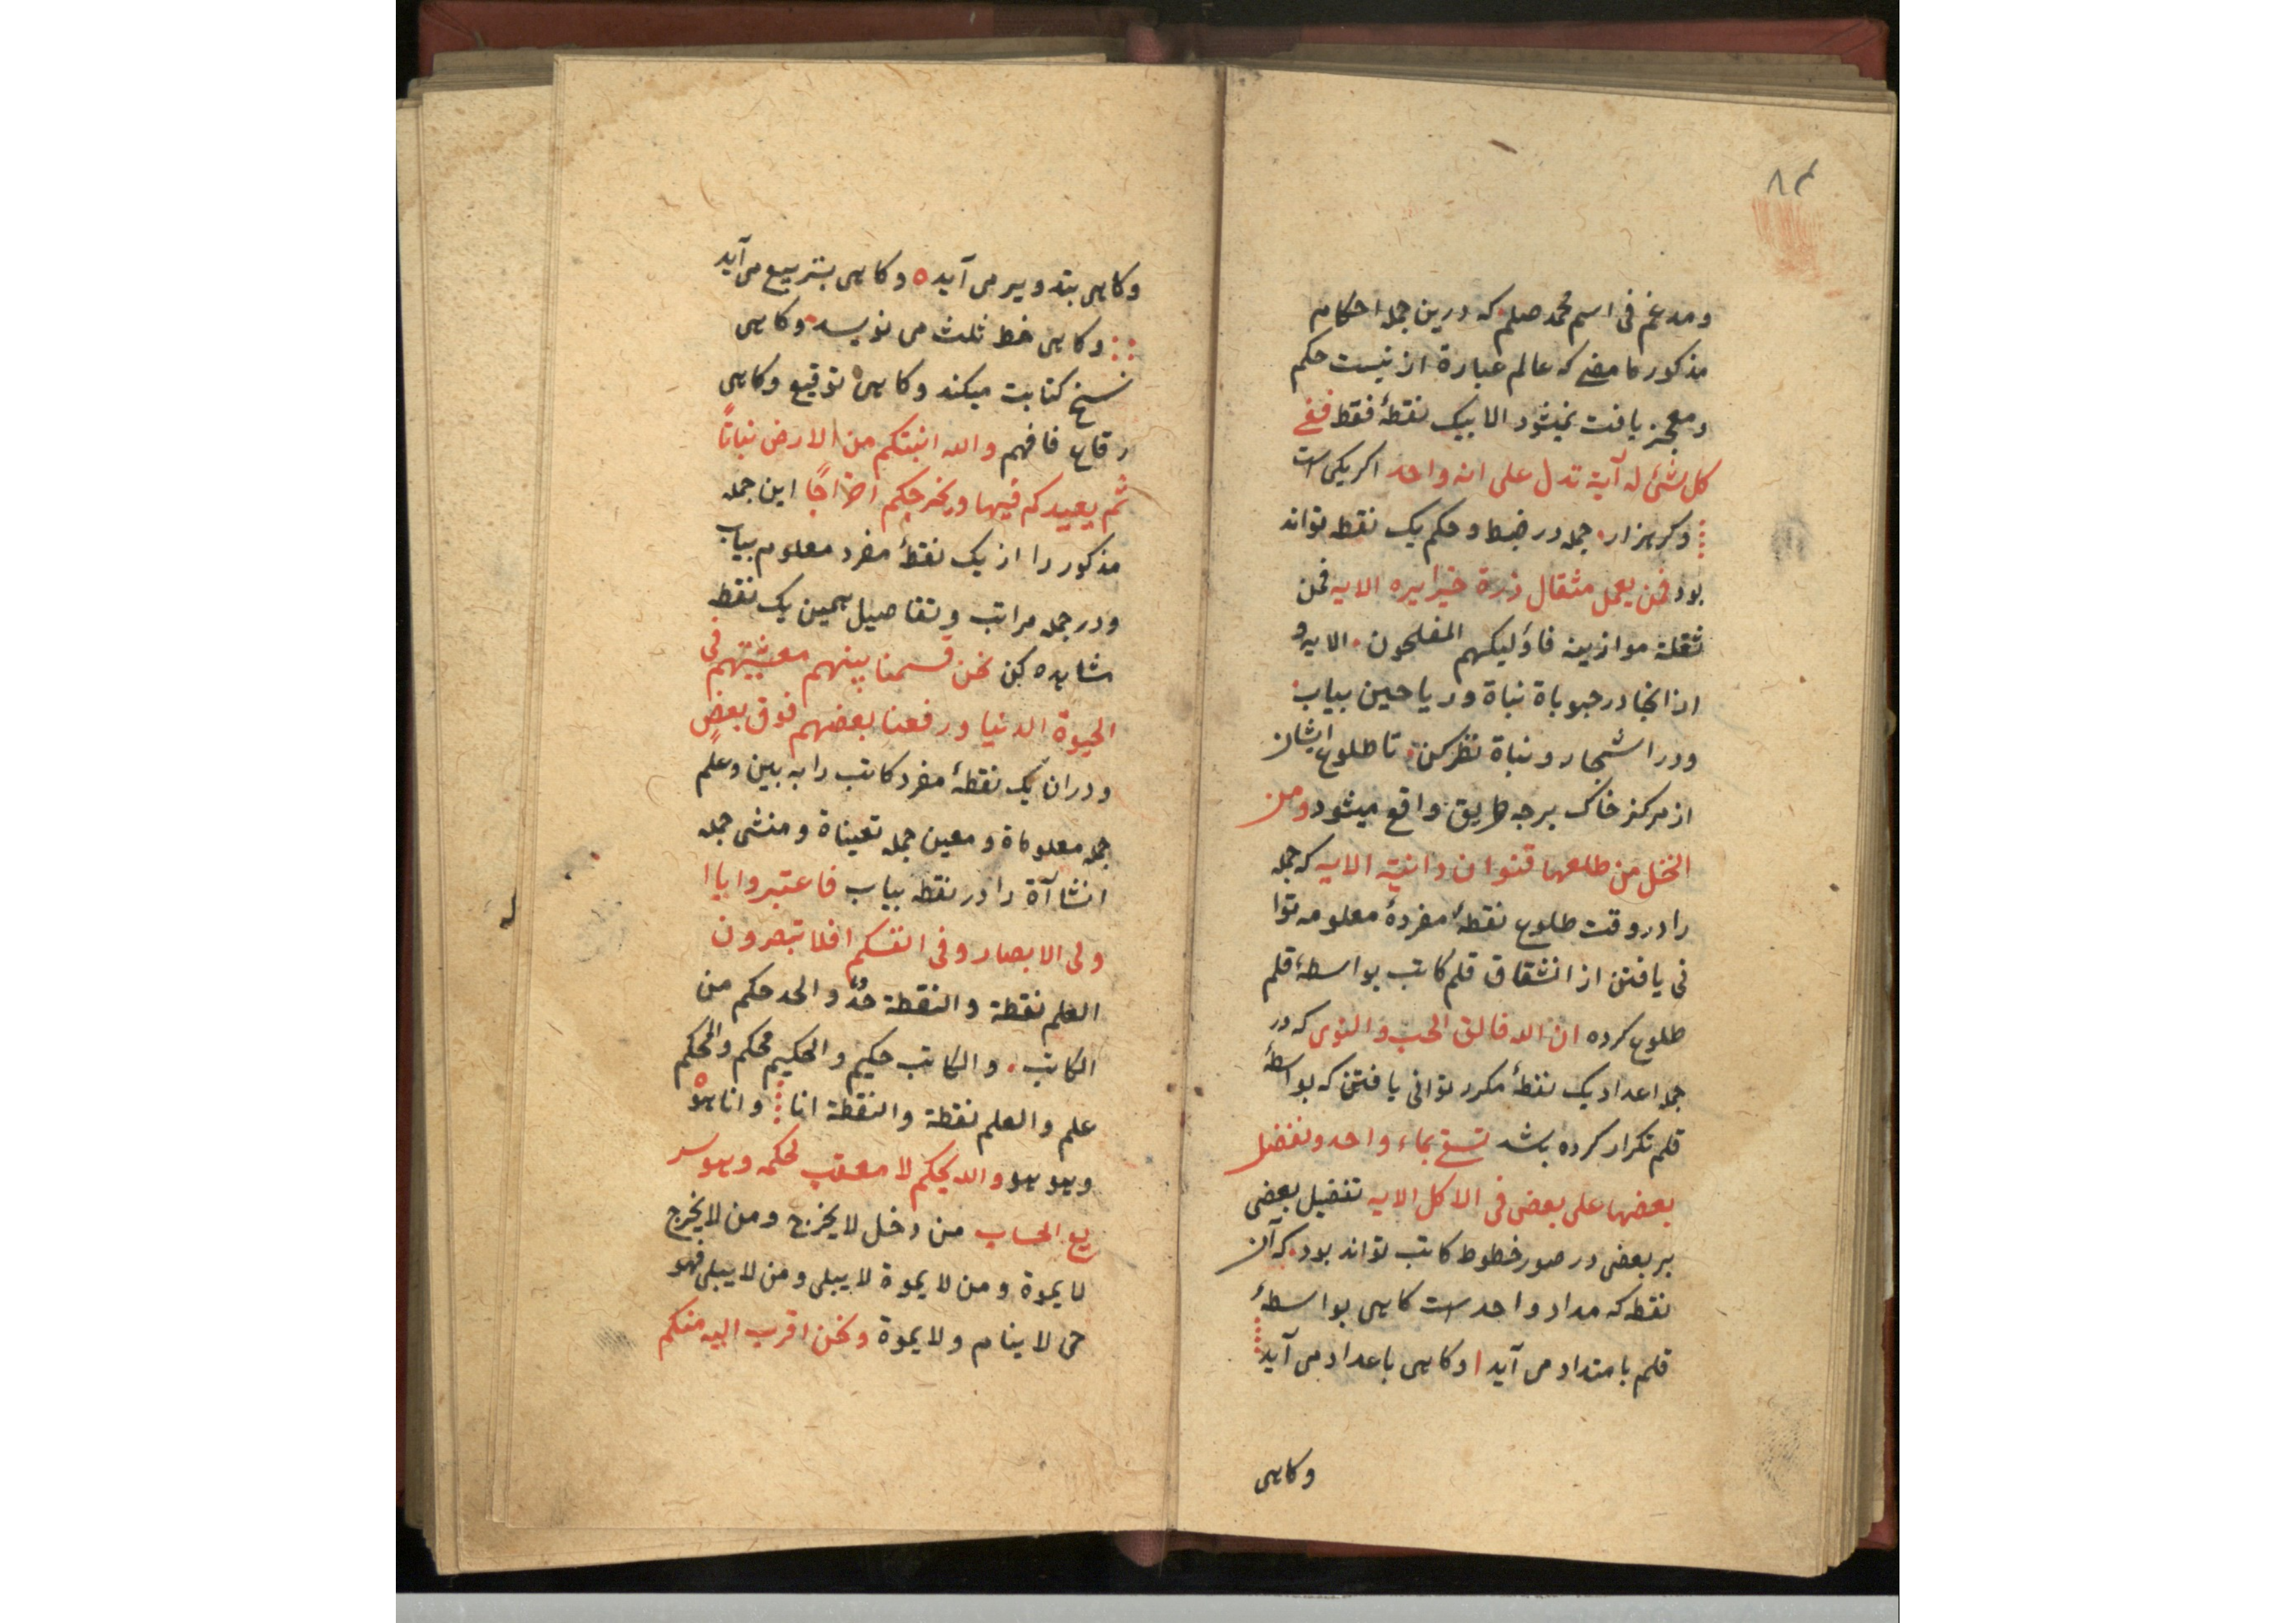 ۸۳
ومدغم فی اسم محمد صلم که درین جمله احکام
مذکور ما مضے که عالم عبارة ازنیست حکم
ومعجز یافت نمیشود الا بیک نقطۀ فقط ففے
کل شئ له آیة تدل علی انه واحد اکر یکی است
وکر هزار جمله در ضبط وحکم یک نقطه تواند
بود فمن یعمل مثقال ذرة خیرا یره الایه فمن
ثقلة موازینه فاولیکهم المفلحون الایه و
از انجا در حبوباة نباة و ریاحین بیاب
ودر اشجار و نباة نظر کن تا طلوع ایشان
از مرکز خاک برجه طریق واقع میشود ومن
النخل من طلعها قنوان دانیة الایه که جمله
را در وقت طلوع نقطۀ مفردۀ معلومه توا
نی یافتن از انشقاق قلم کاتب بواسطۀ قلم
طلوع کرده ان الله فالق الحب والنوی که در
جمله اعداد یک نقطۀ مکرر توانی یافتن که بواسطۀ
قلم تکرار کرده باشد تسقی بماء واحد ونفضل
بعضها علی بعض فی الاکل الایه تفضیل بعضی
بر بعضی در صور خطوط کاتب تواند بود که آن
نقطه که مداد واحد است کاهی بواسطۀ
قلم بامتداد می آید ا وکاهی باعداد می آید
وکاهی
وکاهی بتدویر می آید ه وکاهی بتربیع می آید
وکاهی خط ثلث می نویسد وکاهی
نسخ کتابت میکند وکاهی توقیع وکاهی
رقاع فافهم والله انبتکم من الارض نباتاً
ثم یعیدکم فیها ویخرجکم اخراجاً این جمله
مذکور را از یک نقطۀ مفرد معلوم بیاب
ودر جمله مراتب وتفاصیل همین یک نقطه
مشاهده کن نحن قسمنا بینهم معیشتهم فی
الحیوة الدنیا ورفعنا بعضهم فوق بعضٍ
ودران یک نقطۀ مفرد کاتب را به بین وعلم
جمله معلوماة و معین جمله تعیناة ومنشی جمله
انشاآة را در نقطه بیاب فاعتبروا یا ا
ولی الابصار وفی انفسکم افلا تبصرون
العلم نقطة والنقطة حدٌّ والحد حکم من
الکاتب والکاتب حکیم والحکیم محکم والمحکم
علم والعلم نقطة والنقطة انا وانا هو
وهو هو والله یحکم لا معقب لحکمه وهو سر
یع الحساب من دخل لا یخرج ومن لا یخرج
لا یموة ومن لا یموة لا یبلی ومن لا یبلی فهو
حی لا ینام ولا یموة ونحن اقرب الیه منکم